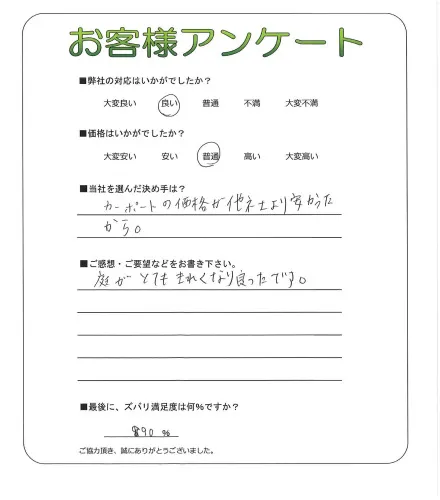 お客様アンケート
■弊社の対応はいかがでしたか？
大変良い 良い 普通 不満 大変不満
■価格はいかがでしたか？
大変安い 安い 普通 高い 大変高い
■当社を選んだ決め手は？
カーポートの価格が他社より安かった
から。
■ご感想・ご要望などをお書き下さい。
庭がとてもきれいになり良かったです。
■最後に、ズバリ満足度は何%ですか？
90 %
ご協力頂き、誠にありがとうございました。